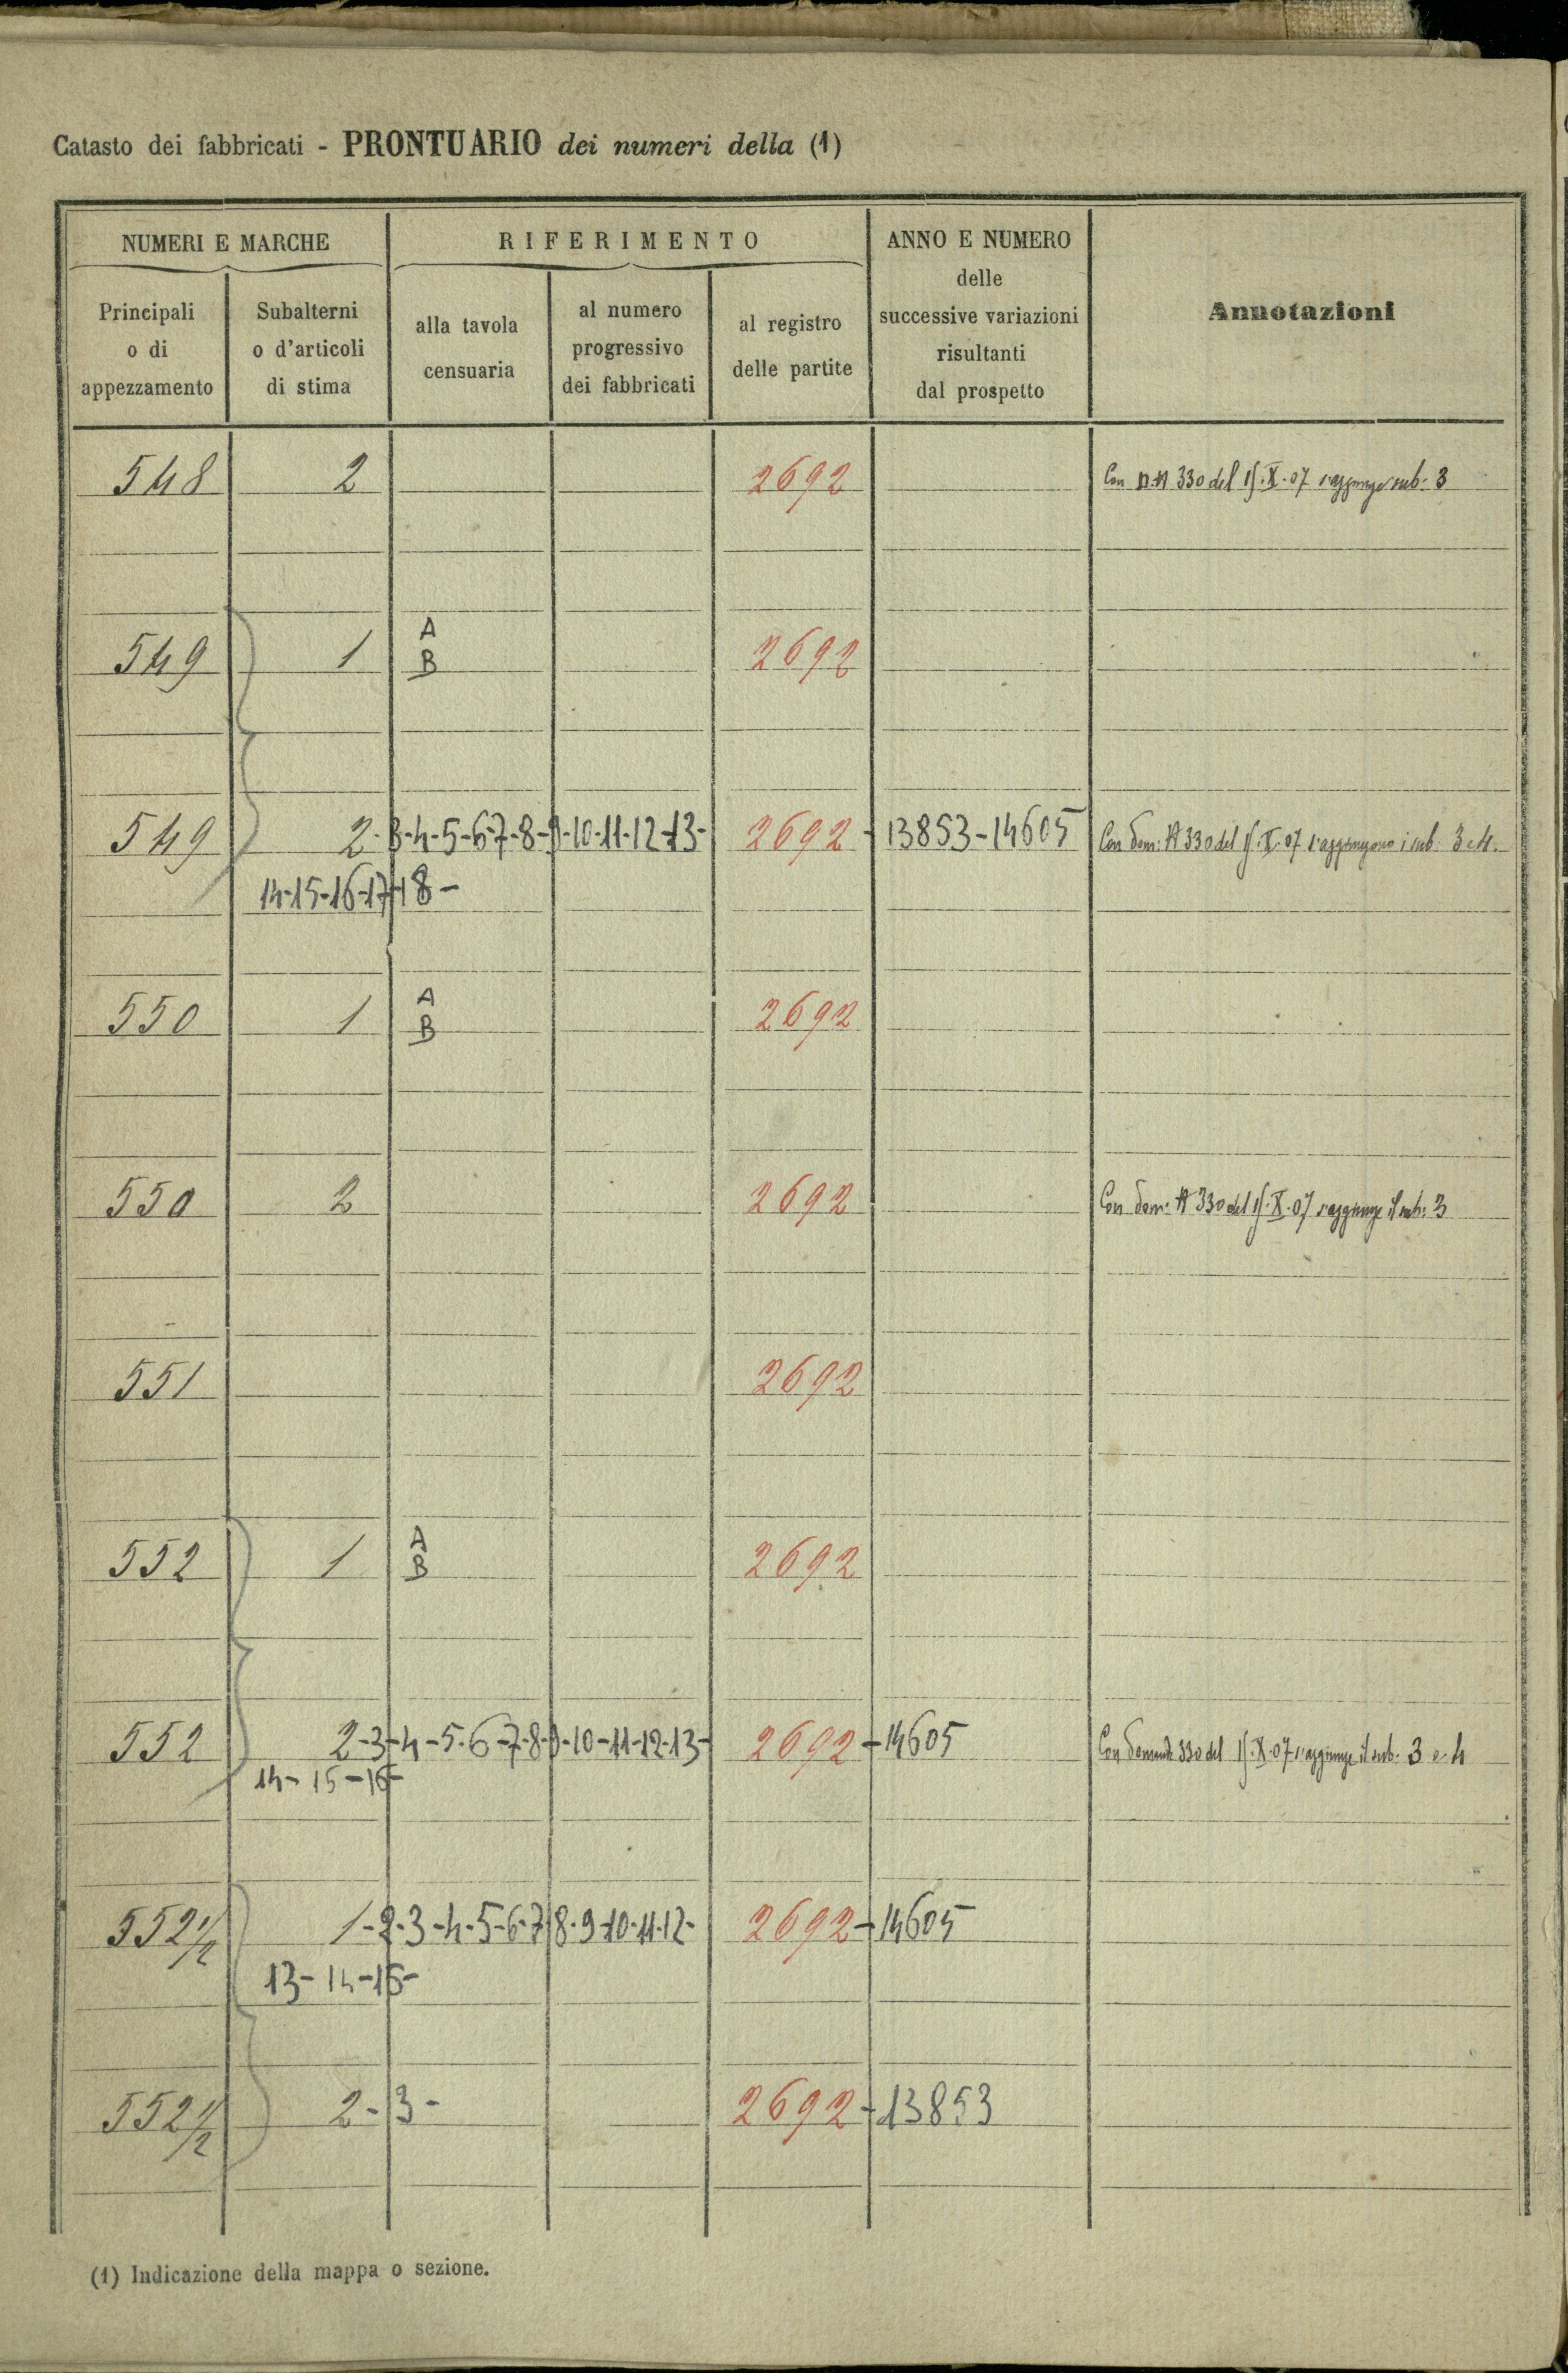 Catasto dei fabbricati - PRONTUARIO dei numeri della (1)
NUMERI E MARCHE
Principali o di appezzamento
Subalterni o d'articoli di stima
RIFERIMENTO
alla tavola censuaria
al numero progressivo dei fabbricati
al registro delle partite
ANNO E NUMERO delle successive variazioni risultanti dal prospetto
Annotazioni
548 2 2692 Con 330 del X.07 s'aggiunge sub. 3
549 1 A B 2692
549 2-3-4-5-6-7-8-9-10-11-12-13- 2692 - 13853-14605 Con Dom. 330 del X.07 s'aggiungono i sub. 3 e 4.
14-15-16-17-18-
550 1 A B 2692
550 2 2692 Con Dom. 330 del X.07 s'aggiunge il sub. 3
551 2692
552 1 A B 2692
552 2-3-4-5-6-7-8-9-10-11-12-13- 2692 - 14605 Con Domanda 330 del X.07 s'aggiunge il sub. 3 e 4
14-15-16-
552 1/2 1-2-3-4-5-6-7-8-9-10-11-12- 2692 - 14605
13-14-16-
552 1/2 2-3- 2692 - 13853
(1) Indicazione della mappa o sezione.